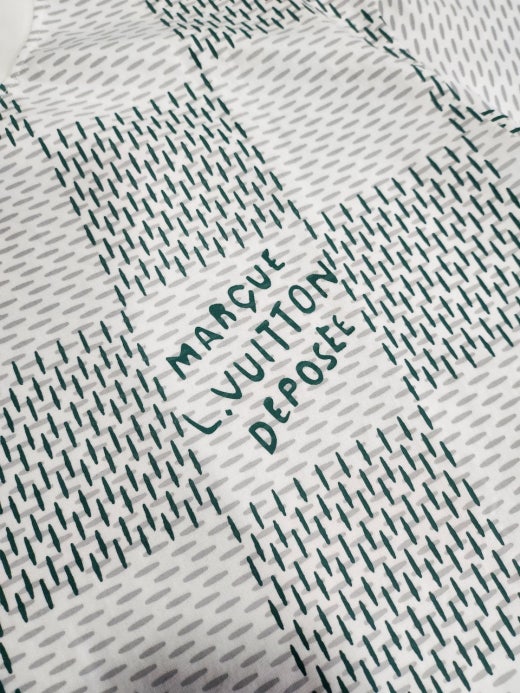 MARQUE
L.VUITTON
DEPOSÉE